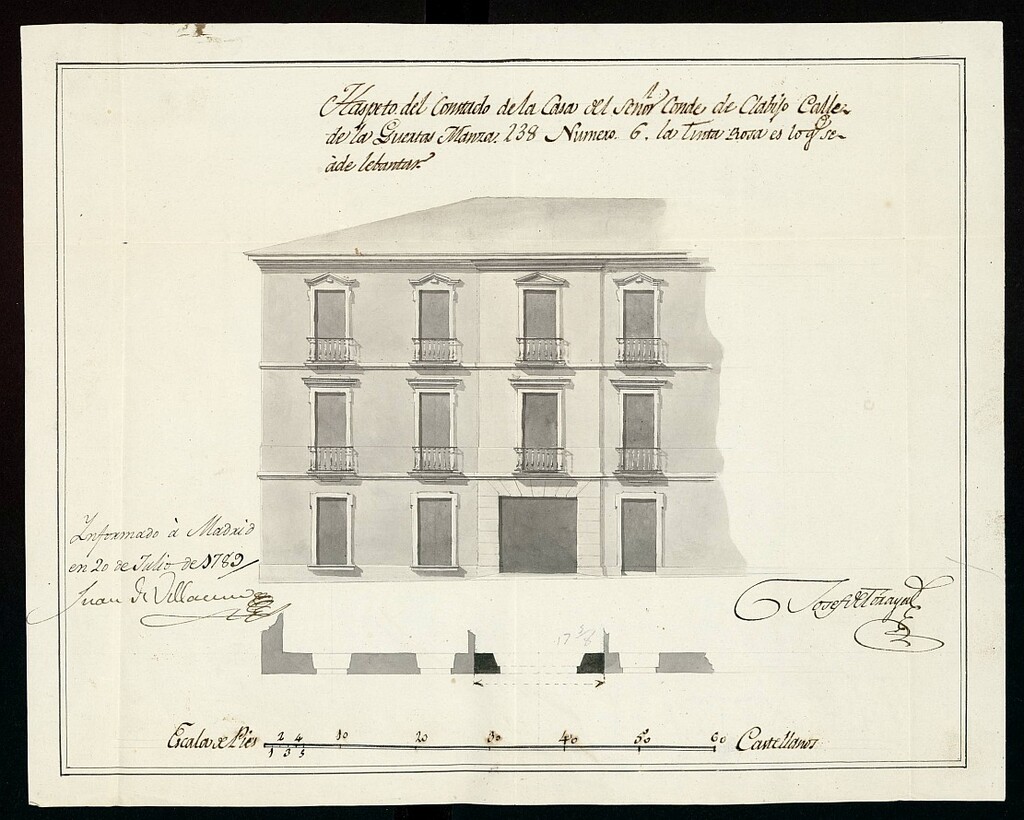 Haspeto del Contado de la Casa del Señor Conde de Clabijo Calle
de la Guertas Manza. 238 Numero. 6. la tinta Rosa es lo q.e se
à de lebantar
Informado à Madrid
en 20 de Julio de 1789
Juan de Villanueva
Josef de
17 3/8
Escala de Pies 1 2 3 4 5 10 20 30 40 50 60 Castellanos